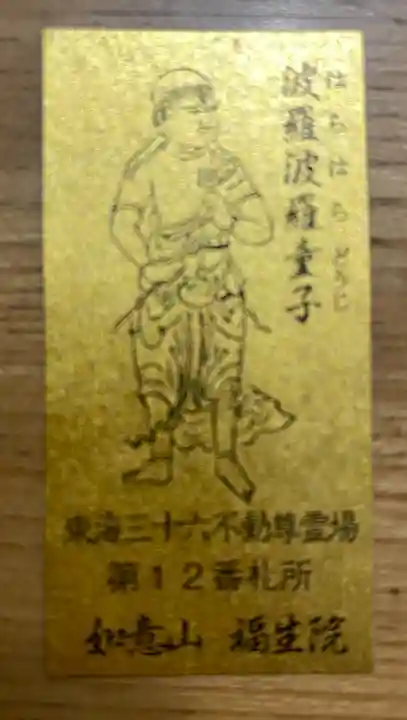 波羅波羅童子
はらはらどうじ
東海三十六不動尊霊場
第12番札所
如意山 福生院